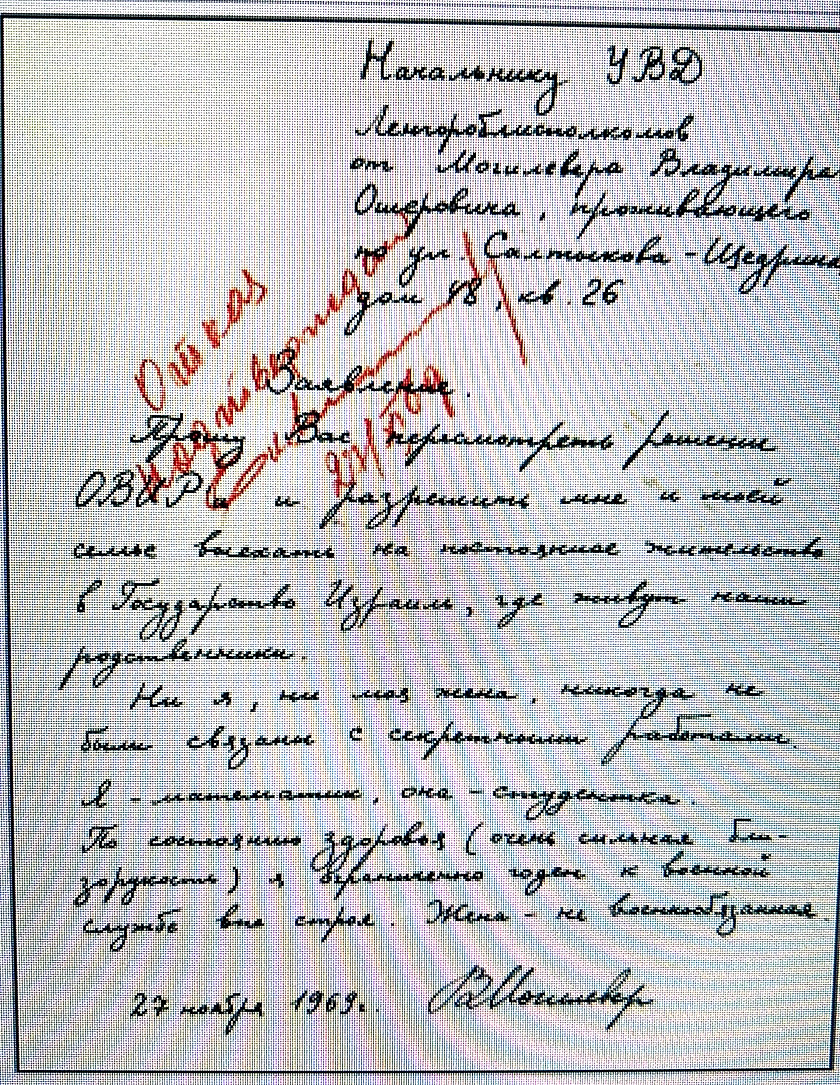 Начальнику УВД
Ленгороблисполкомов
от Могилевера Владимира
Ошеровича, проживающего
по ул. Салтыкова-Щедрина
дом 48, кв. 26
Отказ
Заявление.
Прошу Вас пересмотреть решение
ОВИРа и разрешить мне и моей
семье выехать на постоянное жительство
в Государство Израиль, где живут наши
родственники.
Ни я, ни моя жена, никогда не
были связаны с секретными работами.
Я - математик, она - студентка.
По состоянию здоровья (очень сильная бли-
зорукость) я ограниченно годен к военной
службе вне строя. Жена - не военнообязанная.
27 ноября 1969г. ВМогилевер